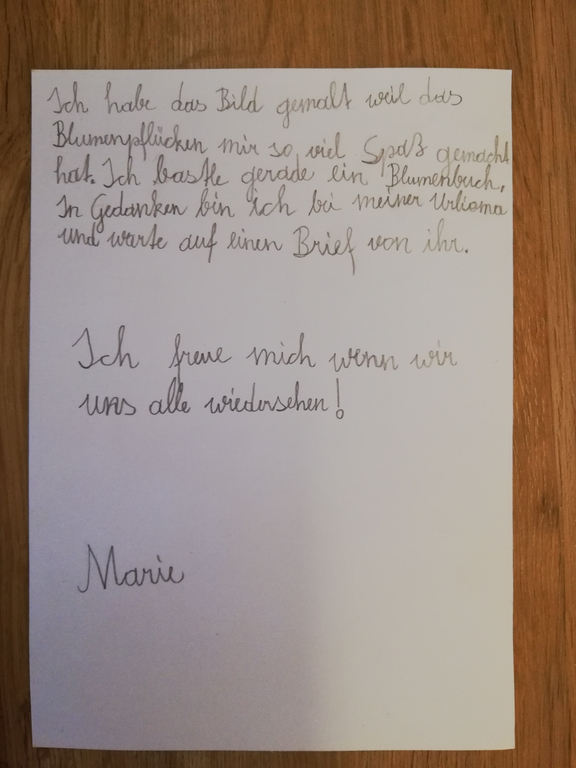 Ich habe das Bild gemalt weil das
Blumenpflücken mir so viel Spaß gemacht
hat. Ich bastle gerade ein Blumenbuch.
In Gedanken bin ich bei meiner Urlioma
und warte auf einen Brief von ihr.
Ich freue mich wenn wir
uns alle wiedersehen!
Marie